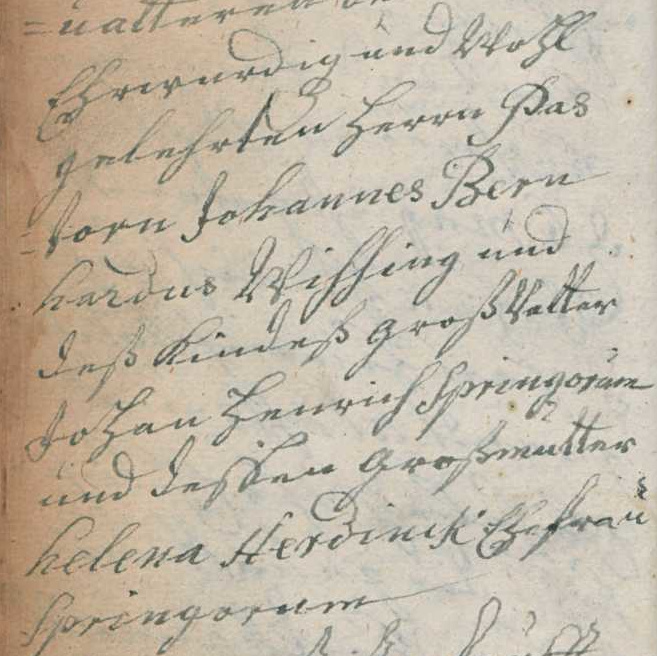 Ehrwurdig und Wohl
gelehrten Herrn Pas
=torn Johannes Bern
hardus Wishing und
deß Kindeß GroßVatter
Johan Henrich Springorum
und dessen Großmutter
helena Herdinck Ehefrau
Springorum